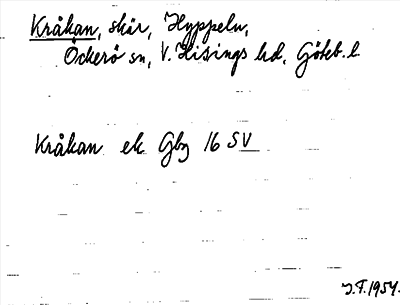 Kråkan, skär, Hyppeln,
Öckerö sn, V. Hisings hd, Göteb. l.
Kråkan ek Gbg 16 SV
J.T. 1954.